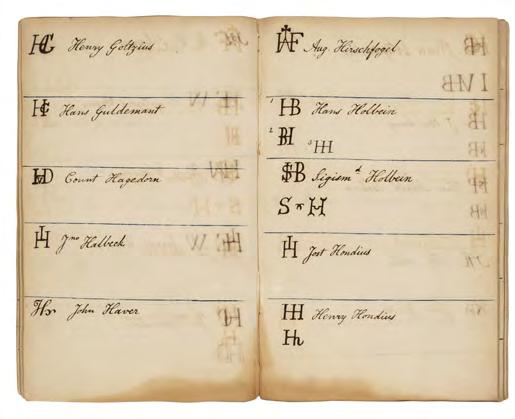 HG Henry Goltzius
HG Hans Guldemant
HD Count Hagedorn
IH Jno Halbeck
Hr John Haver
AF Aug Hirschfogel
1 HB Hans Holbein
2 BH 3 HH
SHB Sigismd Holbein
S H
IH Jost Hondius
HH Henry Hondius
Hh